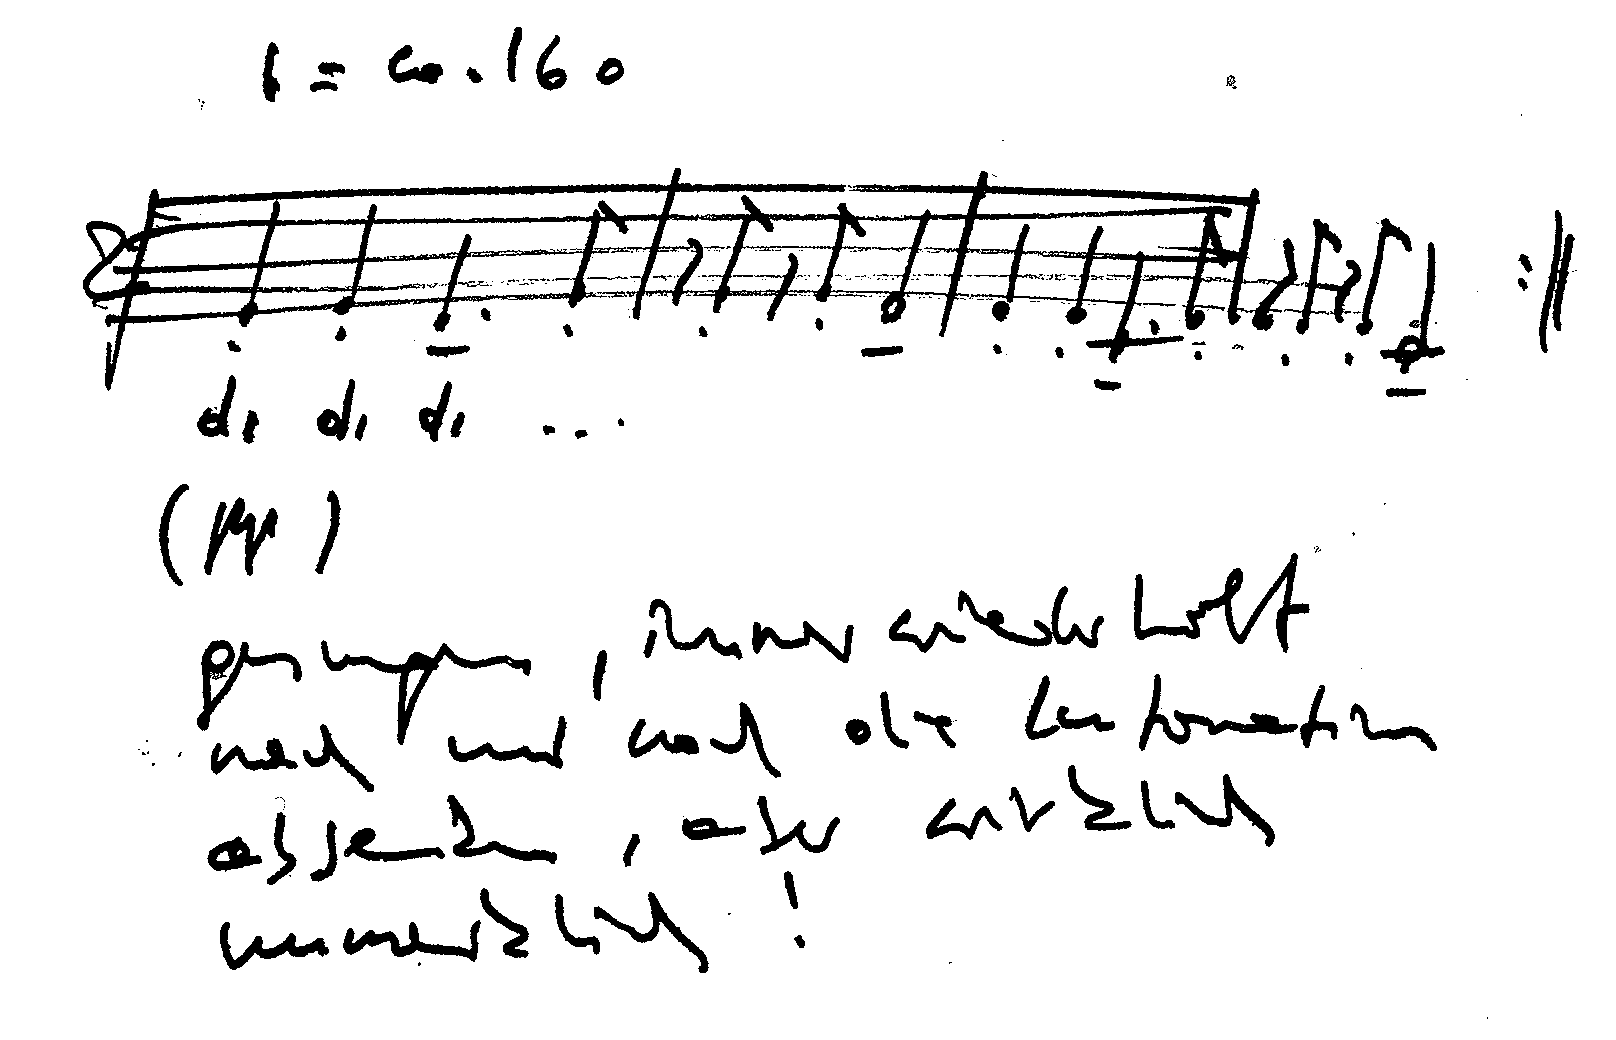 = ca. 160
di di di ...
(pp)
gesungen, immer wiederholt
nach und nach die Intonation
absenken, aber wirklich
unmerklich!